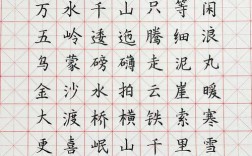 万水千山只等闲
五岭逶迤腾细浪
乌蒙磅礴走泥丸
金沙水拍云崖暖
大渡桥横铁索寒
更喜岷山千里雪